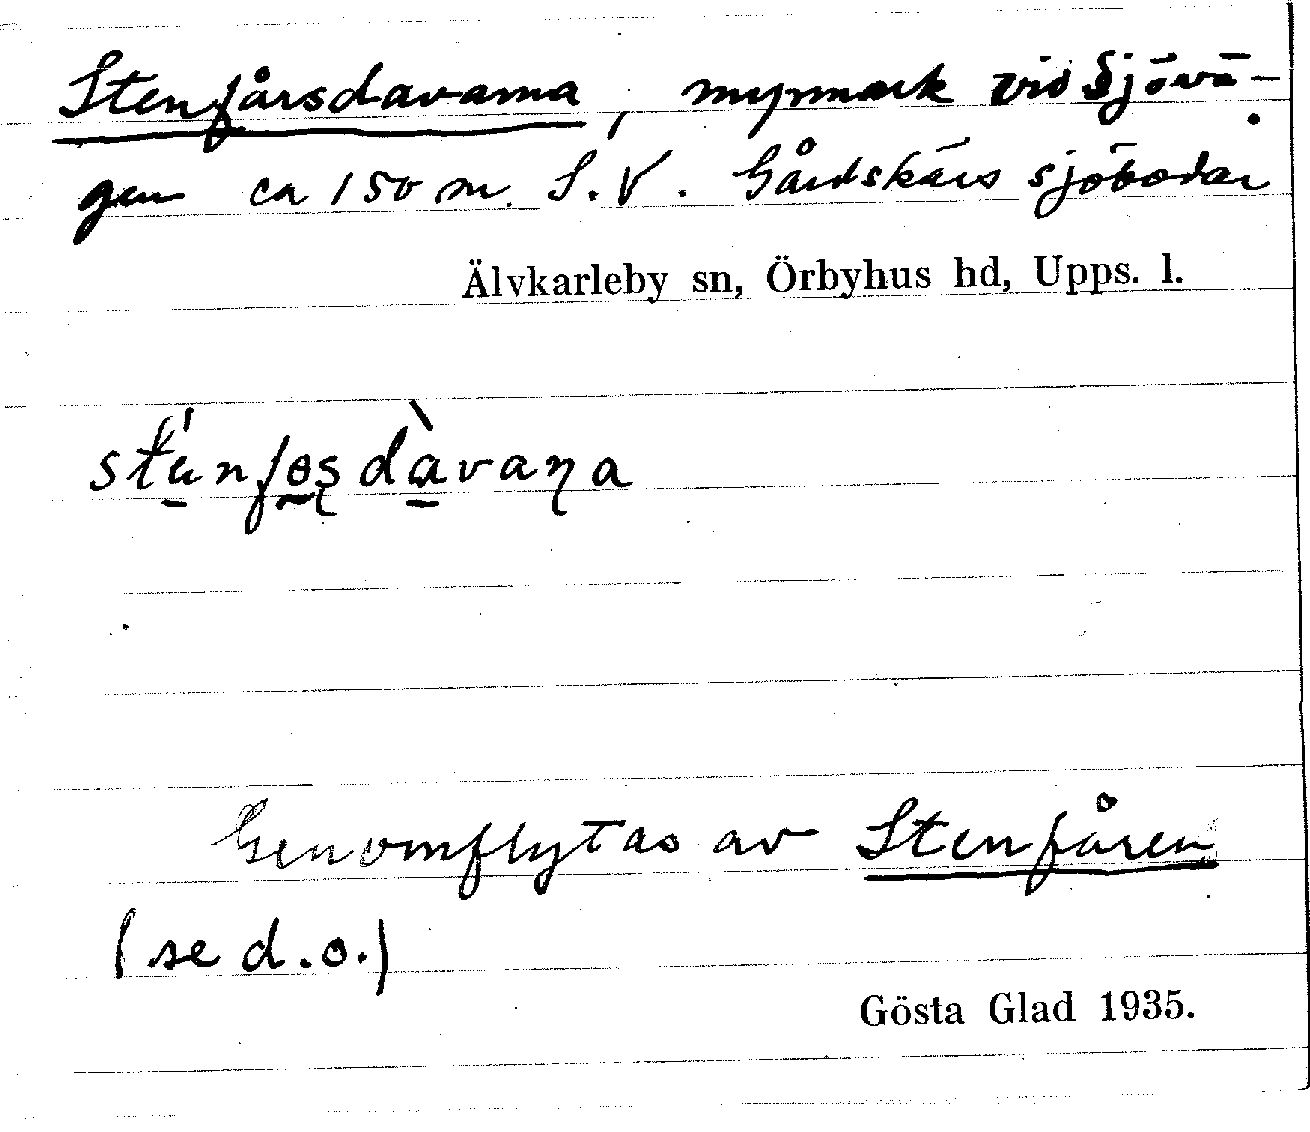 Stenfårsdavarna, myrmark vid Sjövä-
gen ca 150 m. S.V. Gårdskärs sjöbodar
Älvkarleby sn, Örbyhus hd, Upps. l.
Genomflytas av Stenfåren
(se d.o.)
Gösta Glad 1935.